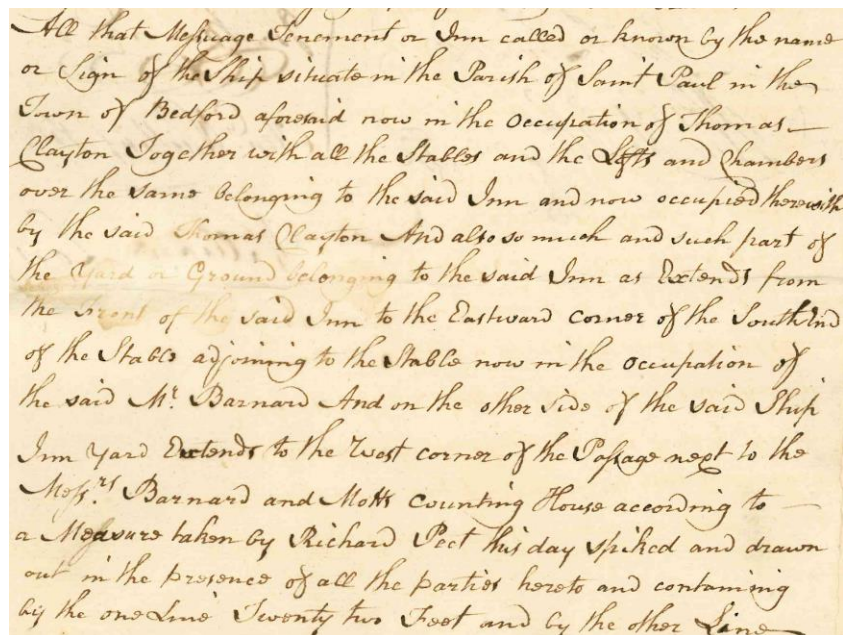 All that Messuage Tenement or Inn called or known by the name
or Sign of the Ship situate in the Parish of Saint Paul in the
Town of Bedford aforesaid now in the Occupation of Thomas
Clayton Together with all the Stables and the Lofts and Chambers
over the same belonging to the said Inn and now occupied therewith
by the said Thomas Clayton And also so much and such part of
the Yard or Ground belonging to the said Inn as Extends from
the Front of the said Inn to the Eastward corner of the South End
of the Stable adjoining to the Stable now in the occupation of
the said Mr. Barnard And on the other side of the said Ship
Inn Yard Extends to the West corner of the Passage next to the
Messrs. Barnard and Motts Counting House according to
a Measure taken by Richard Peet this day spiked and drawn
out in the presence of all the parties hereto and containing
by the one Line Twenty two Feet and by the other Line